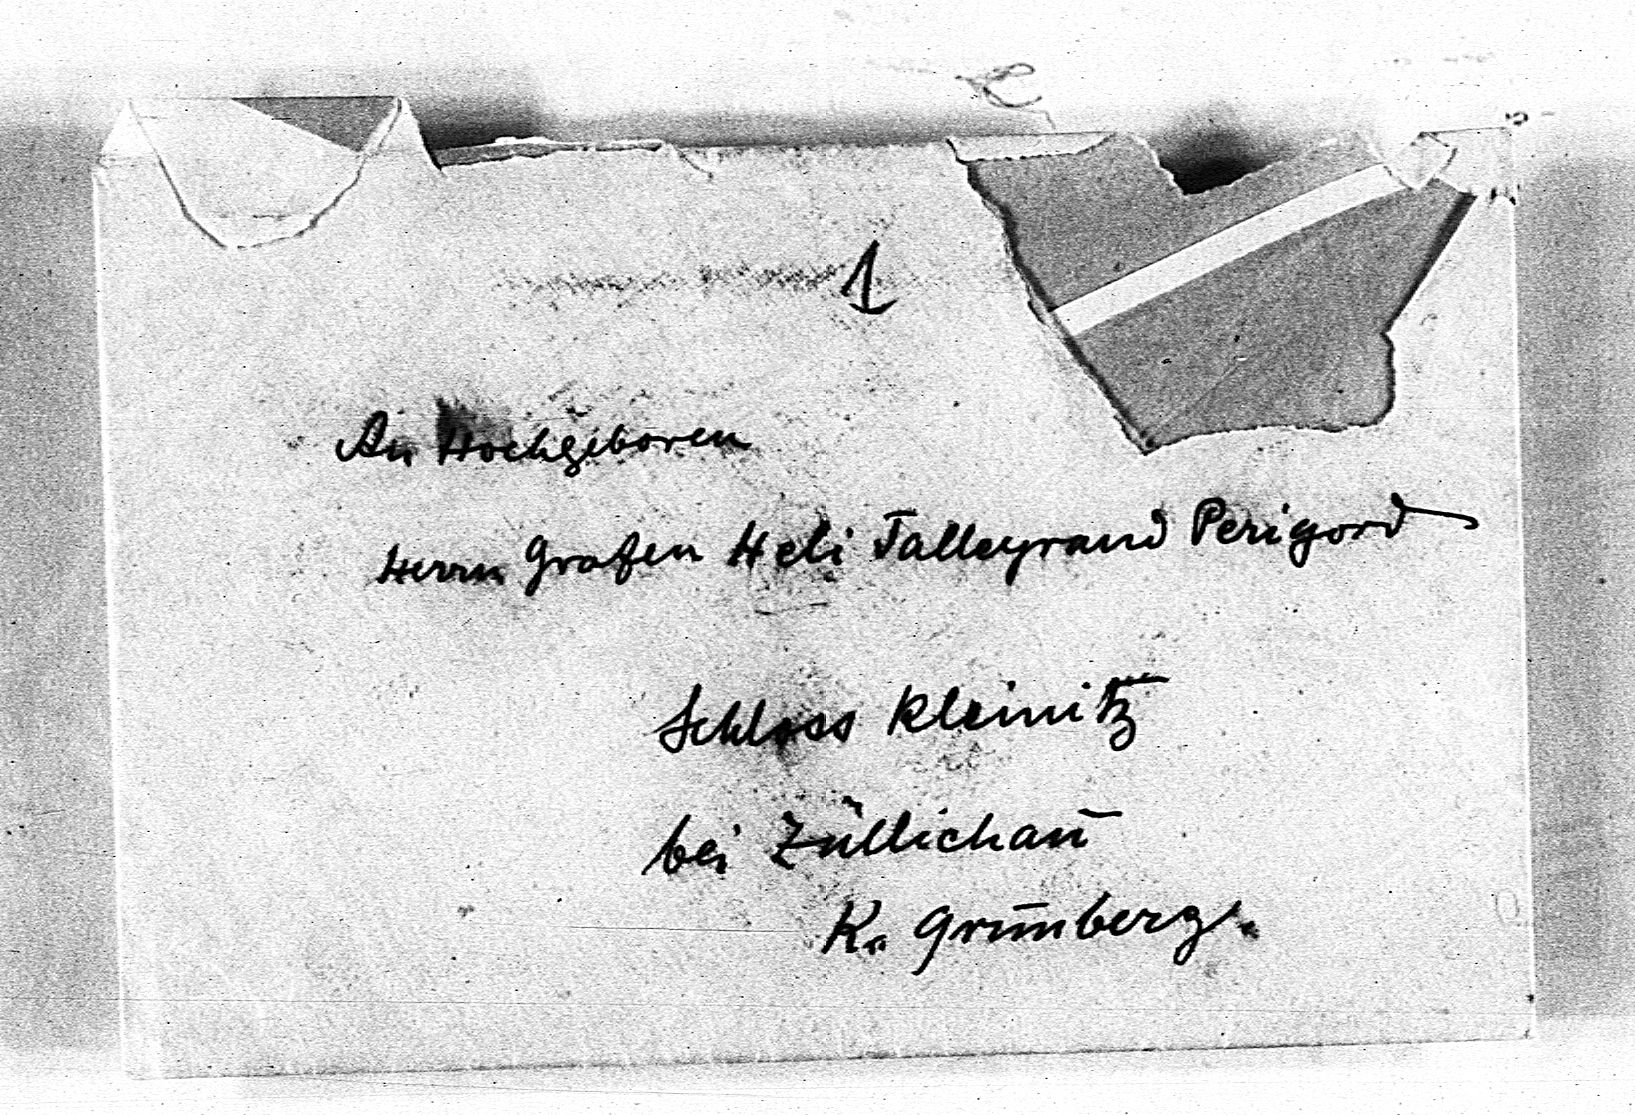 1
An Hochgeboren
Herrn Grafen Heli Talleyrand Perigord
Schloss Kleinitz
bei Züllichau
K. Grünberg.